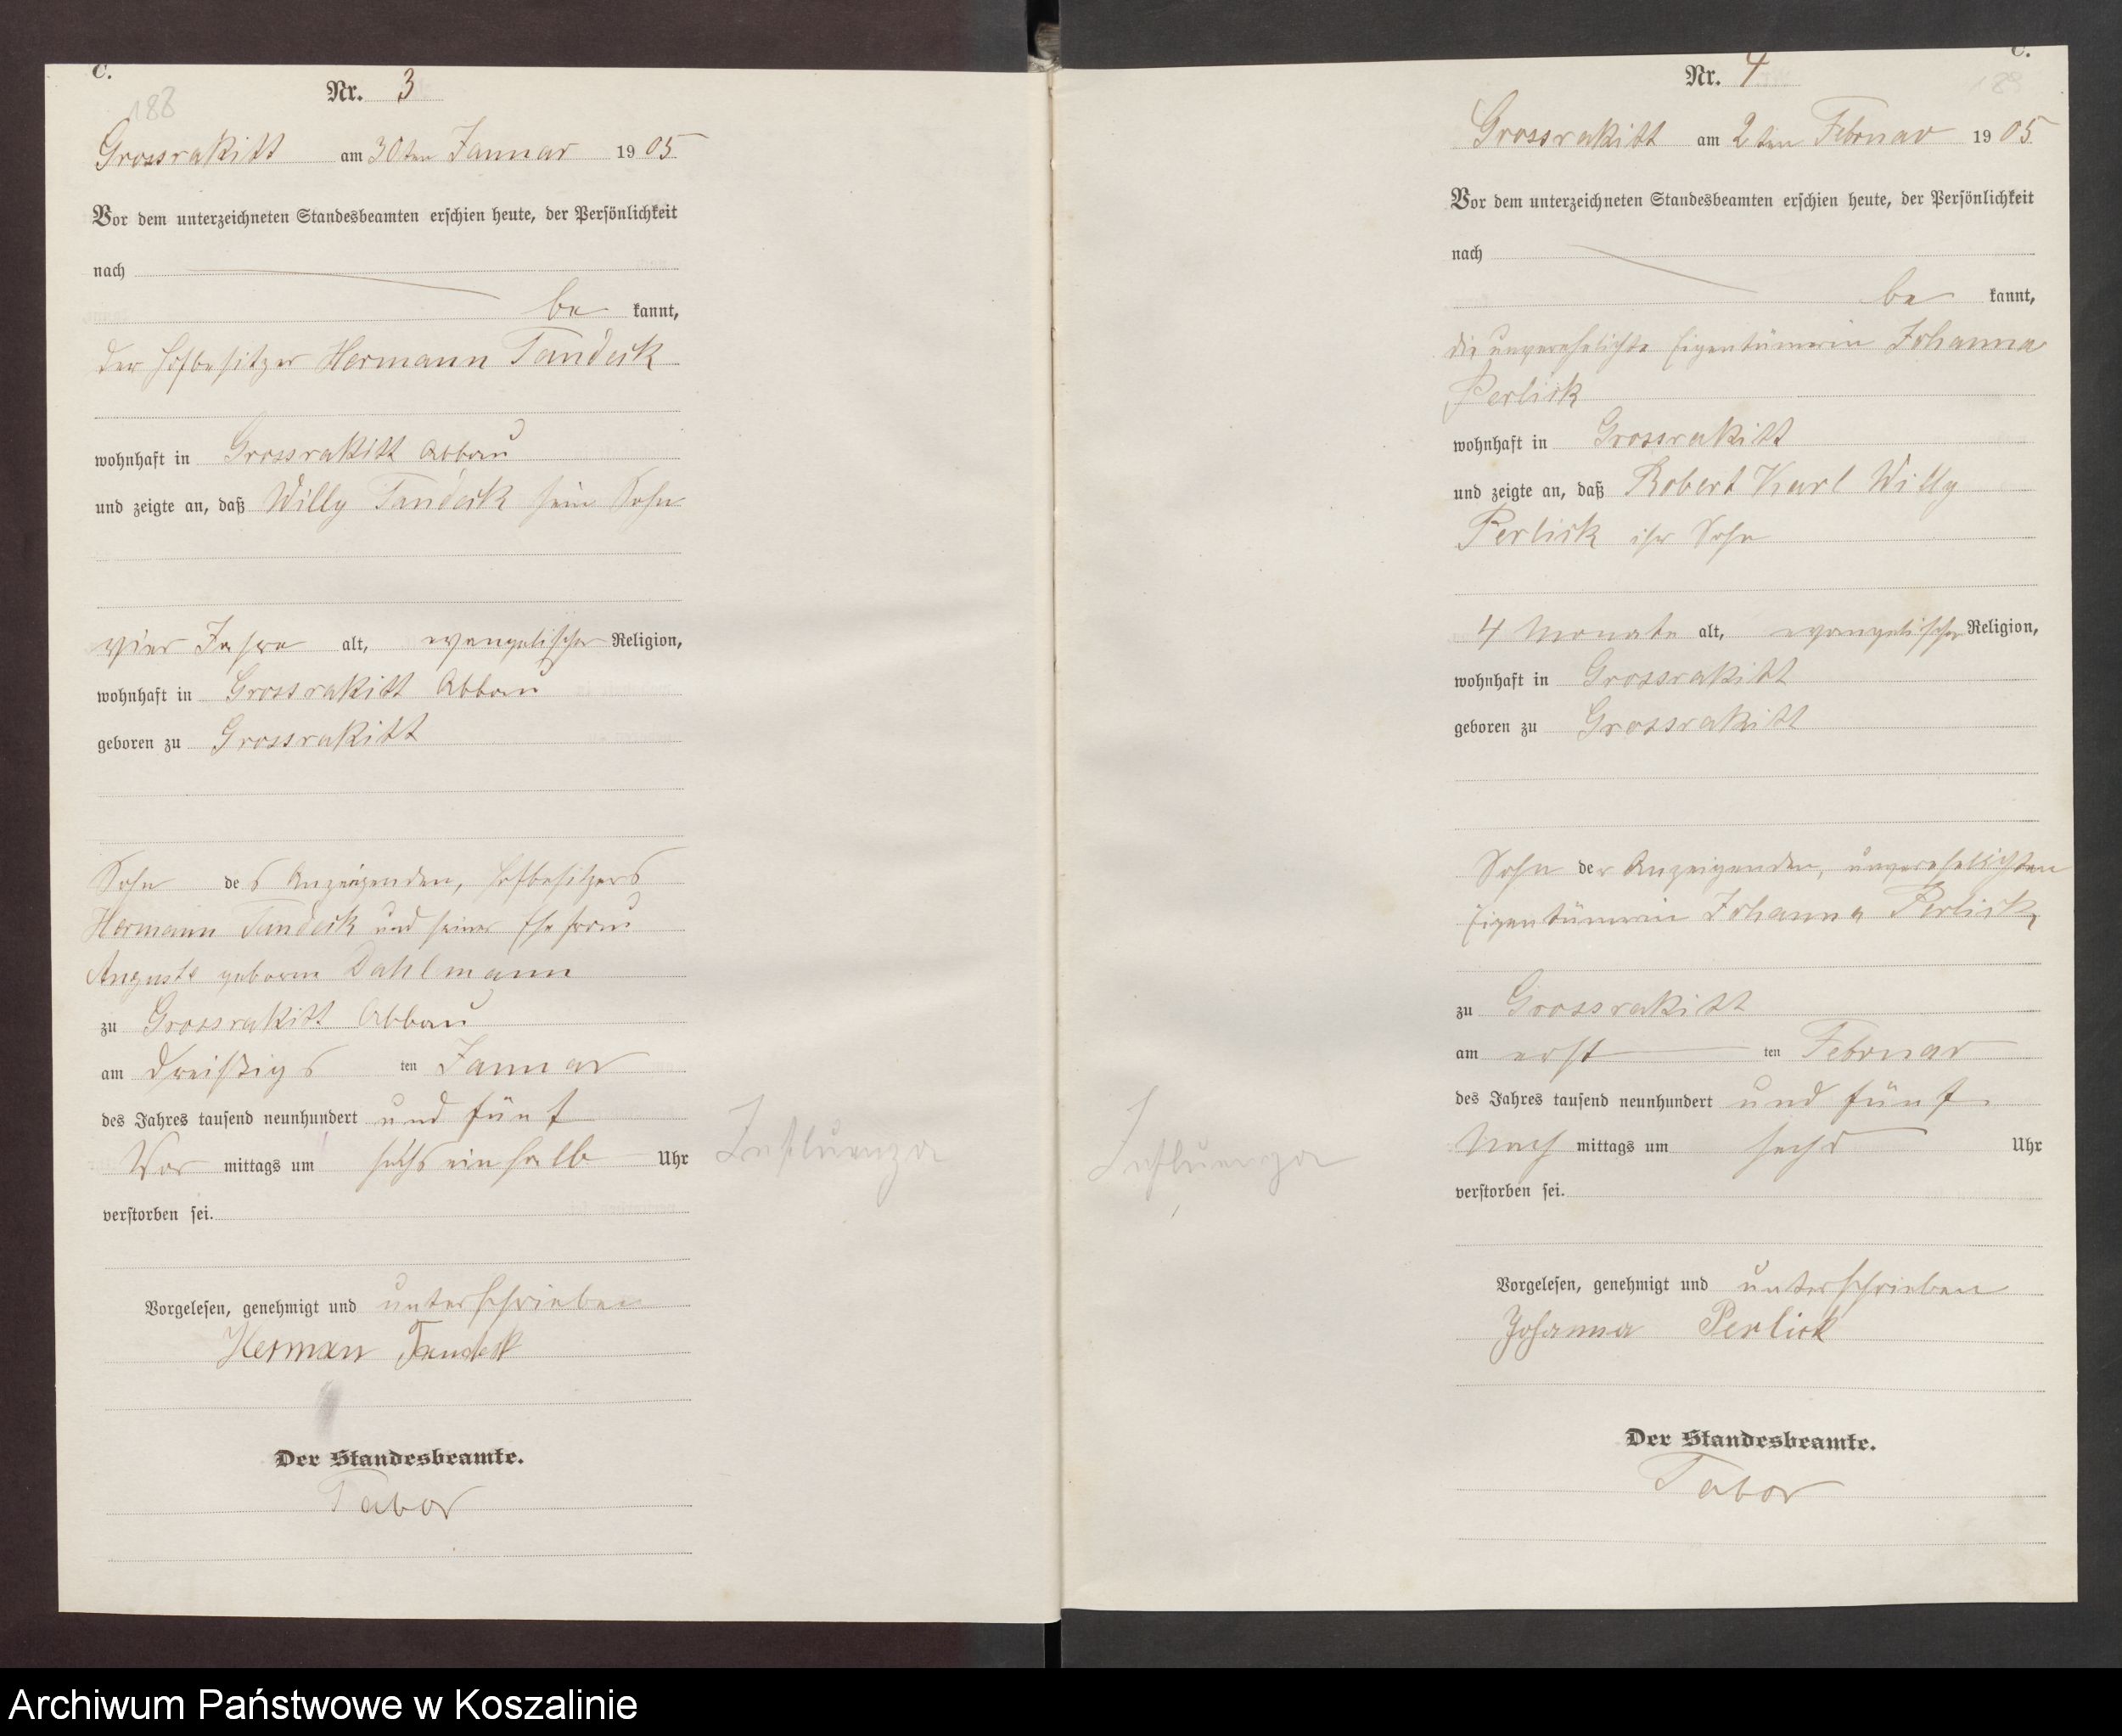 C.
188
Nr. 3
Grossrakitt am 30ten Januar 1905
Vor dem unterzeichneten Standesbeamten erschien heute, der Persönlichkeit
nach
be kannt,
der Hofbesitzer Hermann Tandeck
wohnhaft in Grossrakitt Abbau
und zeigte an, daß Willy Tandeck sein Sohn
vier Jahre alt, evangelischer Religion,
wohnhaft in Grossrakitt Abbau
geboren zu Grossrakitt
Sohn des Anzeigenden, Hofbesitzers
Hermann Tandeck und seiner Ehefrau
Auguste geboren Dahlmann
zu Grossrakitt Abbau
am dreißigs ten Januar
des Jahres tausend neunhundert und fünf
Vor mittags um sechs ein halb Uhr
verstorben sei.
Influenza
Vorgelesen, genehmigt und unterschrieben
Herman Tandek
Der Standesbeamte.
Tabor
C.
189
Nr. 4
Grossrakitt am 2ten Februar 1905
Vor dem unterzeichneten Standesbeamten erschien heute, der Persönlichkeit
nach
be kannt,
die unverehelichte Eigentümerin Johanna
Perlick
wohnhaft in Grossrakitt
und zeigte an, daß Robert Karl Willy
Perlick ihr Sohn
4 Monate alt, evangelischer Religion,
wohnhaft in Grossrakitt
geboren zu Grossrakitt
Sohn der Anzeigenden, unverehelichten
Eigentümerin Johanna Perlick,
zu Grossrakitt
am erst ten Februar
des Jahres tausend neunhundert und fünf
Nach mittags um sechs Uhr
verstorben sei.
Influenza
Vorgelesen, genehmigt und unterschrieben
Johanna Perlick
Der Standesbeamte.
Tabor
Archiwum Państwowe w Koszalinie